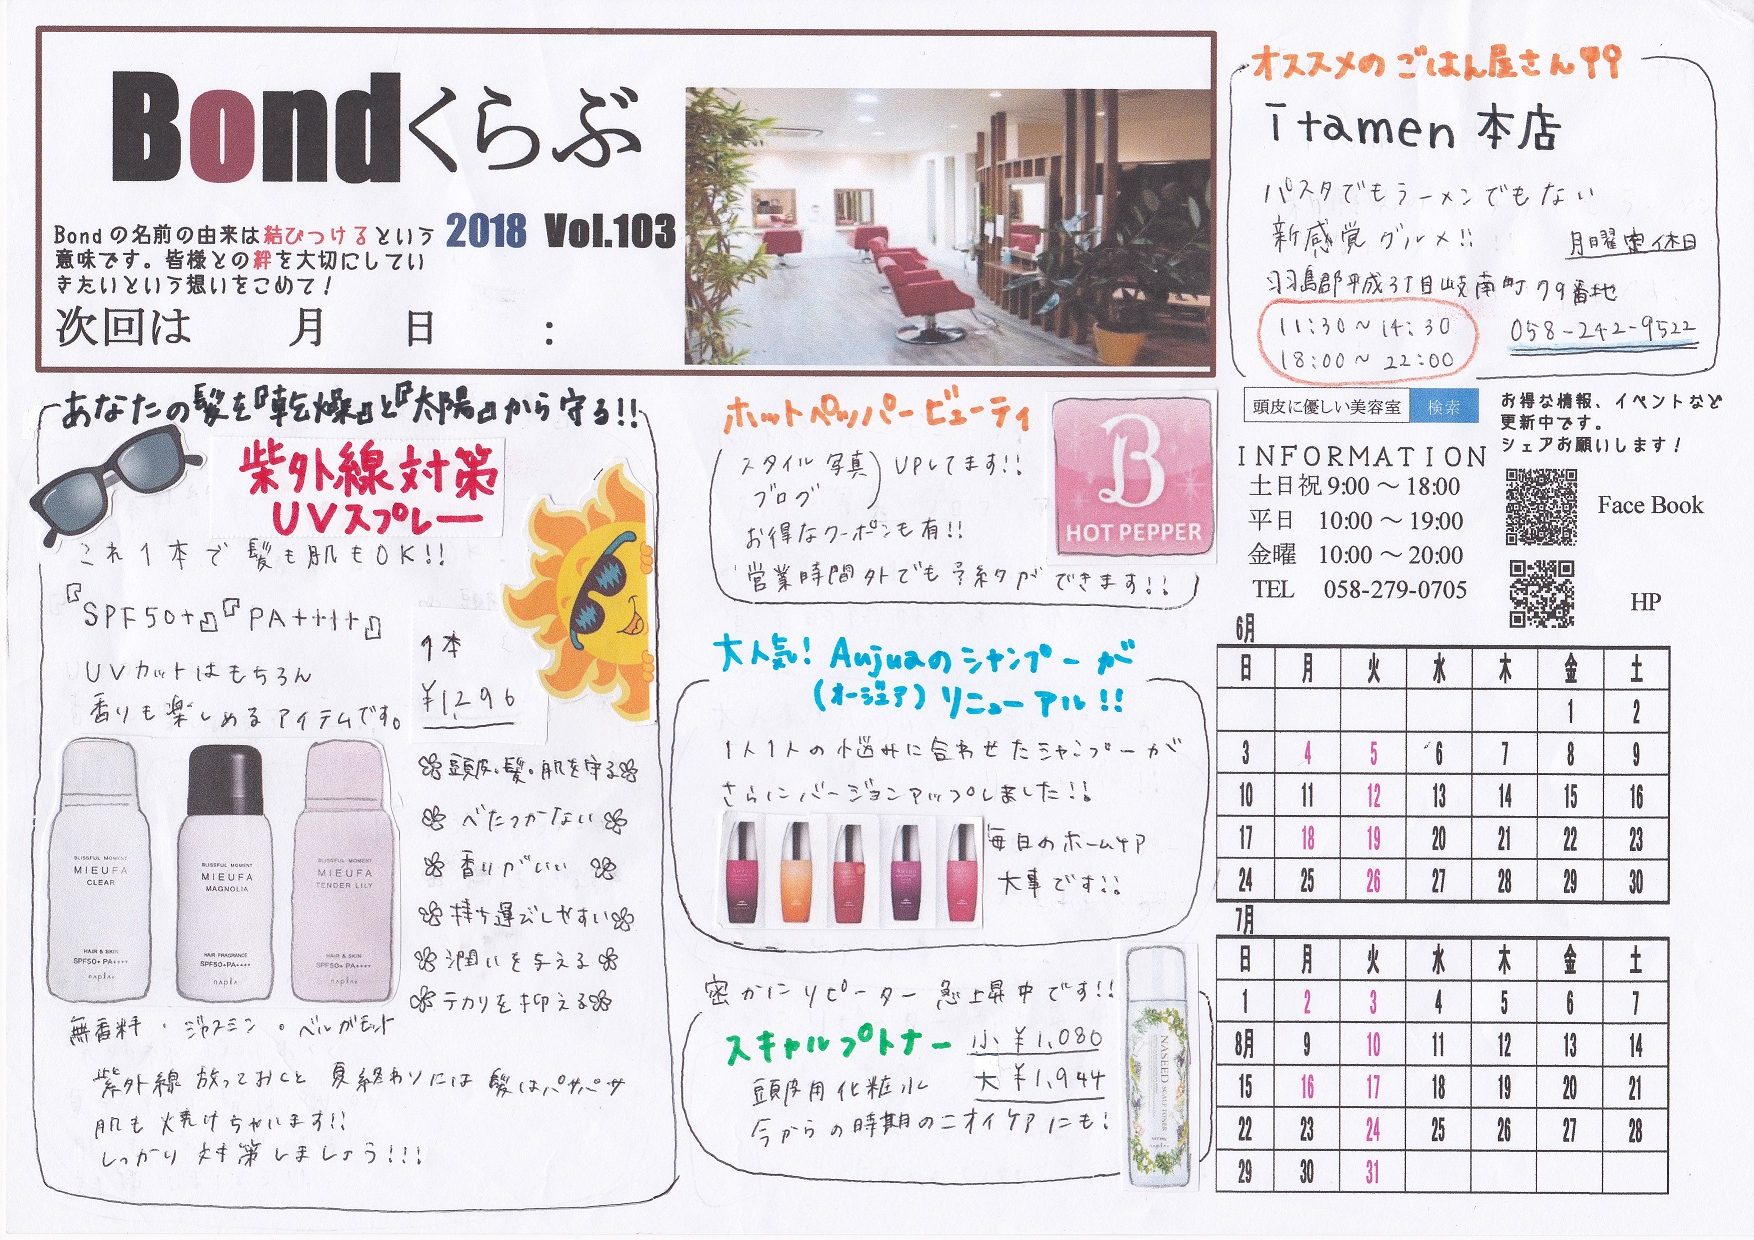 Bondくらぶ
Bondの名前の由来は結びつけるという
意味です。皆様との絆を大切にしてい
きたいという想いをこめて！
2018 Vol.103
次回は 月 日 ：
オススメのごはん屋さん
itamen 本店
パスタでもラーメンでもない
新感覚グルメ!!
月曜定休日
羽島郡平成3丁目岐南町79番地
11:30～14:30
18:00～22:00
058-242-9522
あなたの髪を『乾燥』と『太陽』から守る!!
紫外線対策
UVスプレー
これ1本で髪も肌もOK!!
『SPF50+』『PA++++』
UVカットはもちろん
香りも楽しめるアイテムです。
1本
¥1,296
BLISSFUL MOMENT
MIEUFA
CLEAR
HAIR & SKIN
SPF50+ PA++++
napla
BLISSFUL MOMENT
MIEUFA
MAGNOLIA
HAIR FRAGRANCE
SPF50+PA++++
napla
BLISSFUL MOMENT
MIEUFA
TENDER LILY
HAIR & SKIN
SPF50+ PA++++
napla
頭皮・髪・肌を守る
べたつかない
香りがいい
持ち運びしやすい
潤いを与える
テカリを抑える
無香料・ジャスミン・ベルガモット
紫外線放っておくと夏終わりには髪はパサパサ
肌も焼けちゃいます!!
しっかり対策しましょう!!!
ホットペッパービューティ
スタイル写真
ブログ
UPしてます!!
お得なクーポンも有!!
営業時間外でも予約ができます!!
B
HOT PEPPER
大人気! Aujuaのシャンプーが
(オージュア) リニューアル!!
1人1人の悩みに合わせたシャンプーが
さらにバージョンアップしました!!
毎日のホームケア
大事です!!
密かにリピーター急上昇中です!!
スキャルプトナー
小 ¥1,080
大 ¥1,944
頭皮用化粧水
今からの時期のニオイケアにも!
NASEED SCALP TONER
napla
頭皮に優しい美容室 検索
お得な情報、イベントなど
更新中です。
シェアお願いします！
INFORMATION
土日祝 9:00～18:00
平日 10:00～19:00
金曜 10:00～20:00
TEL 058-279-0705
Face Book
HP
6月
日 月 火 水 木 金 土
1 2
3 4 5 6 7 8 9
10 11 12 13 14 15 16
17 18 19 20 21 22 23
24 25 26 27 28 29 30
7月
日 月 火 水 木 金 土
1 2 3 4 5 6 7
8月 9 10 11 12 13 14
15 16 17 18 19 20 21
22 23 24 25 26 27 28
29 30 31